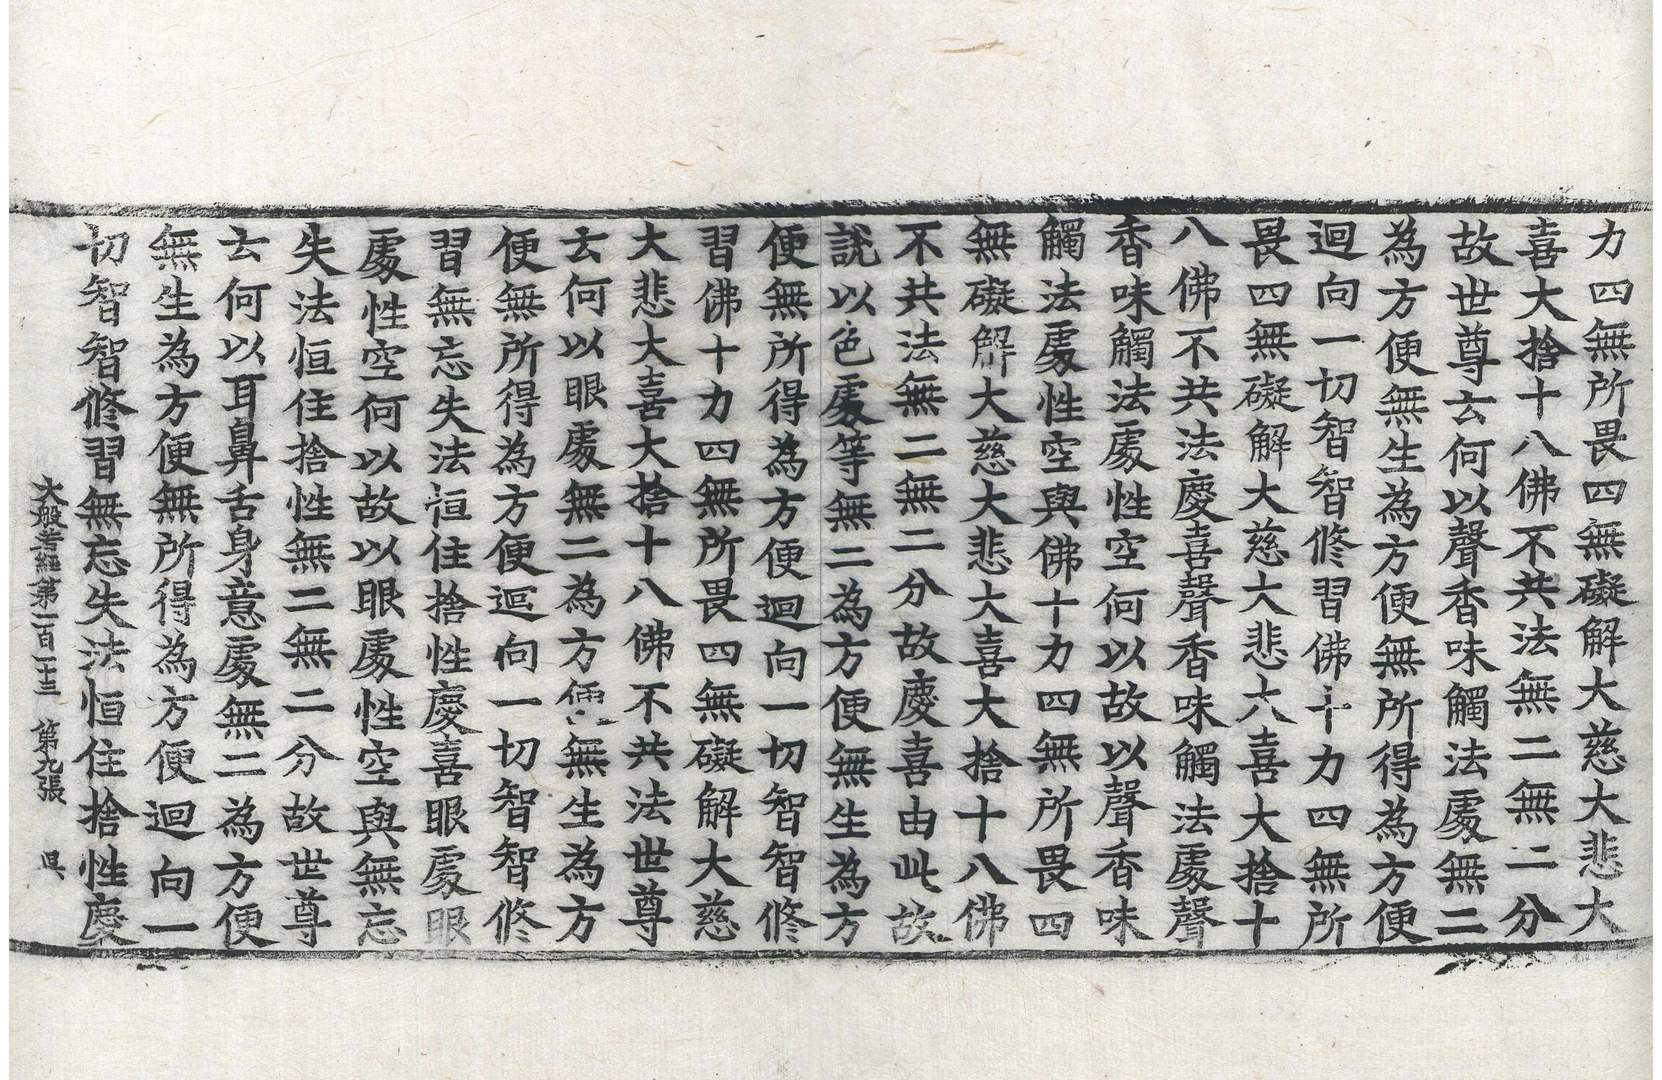 力四無所畏四無礙解大慈大悲大
喜大捨十八佛不共法無二無二分
故世尊云何以聲香味觸法處無二
為方便無生為方便無所得為方便
迴向一切智智修習佛十力四無所
畏四無礙解大慈大悲大喜大捨十
八佛不共法慶喜聲香味觸法處聲
香味觸法處性空何以故以聲香味
觸法處性空與佛十力四無所畏四
無礙解大慈大悲大喜大捨十八佛
不共法無二無二分故慶喜由此故
說以色處等無二為方便無生為方
便無所得為方便迴向一切智智修
習佛十力四無所畏四無礙解大慈
大悲大喜大捨十八佛不共法世尊
云何以眼處無二為方便無生為方
便無所得為方便迴向一切智智修
習無忘失法恒住捨性慶喜眼處眼
處性空何以故以眼處性空與無忘
失法恒住捨性無二無二分故世尊
云何以耳鼻舌身意處無二為方便
無生為方便無所得為方便迴向一
切智智修習無忘失法恒住捨性慶
大般若經第一百一十三 第九張 昃